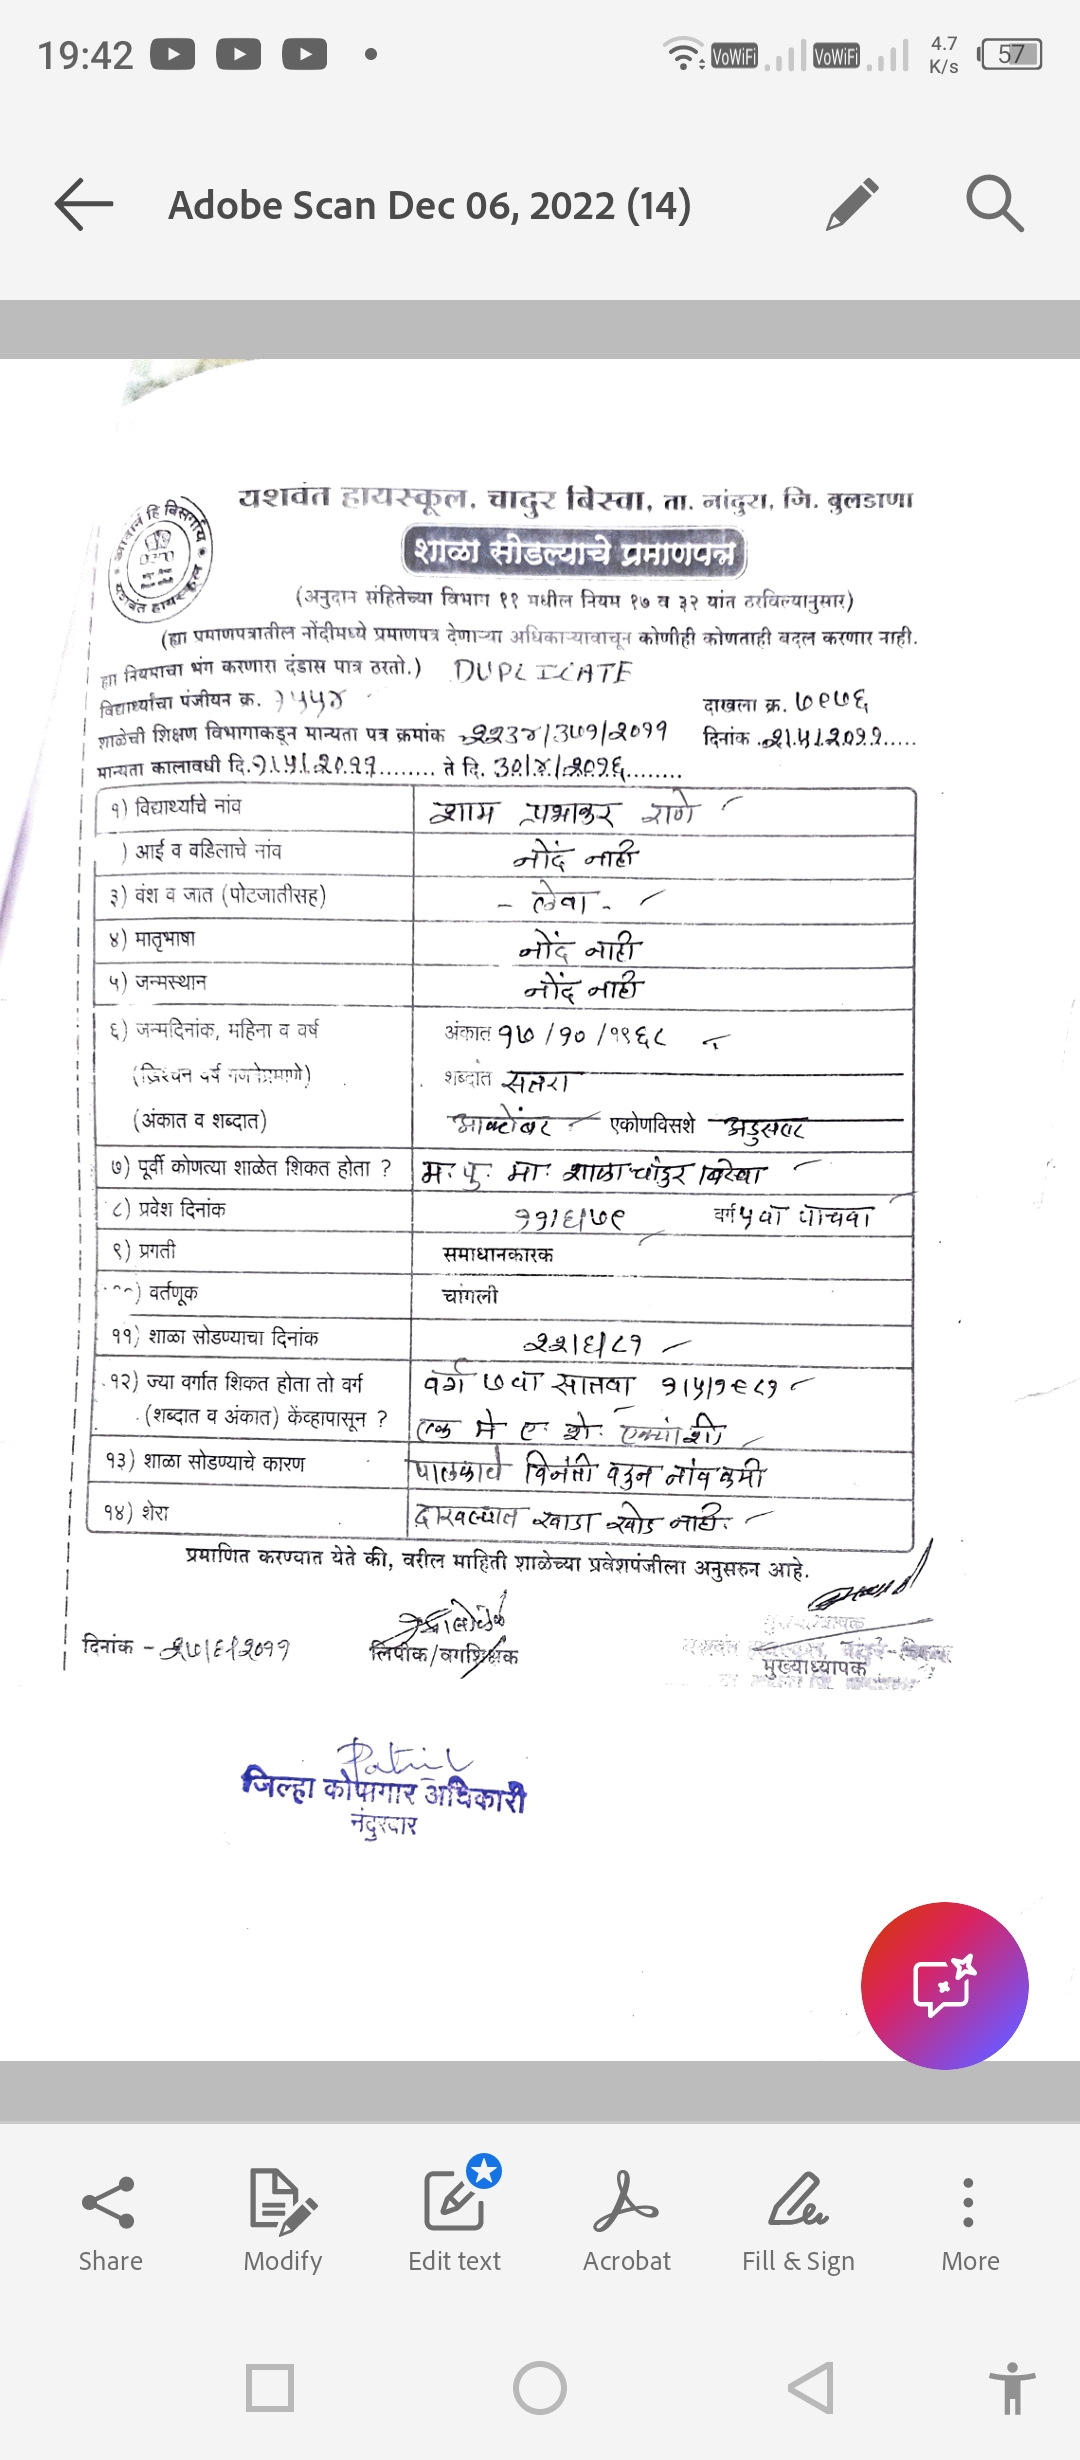 19:42
VoWiFi VoWiFi 4.7 K/s 57
Adobe Scan Dec 06, 2022 (14)
यशवंत हायस्कूल, चादुर बिस्वा, ता. नांदुरा, जि. बुलडाणा
शाळा सोडल्याचे प्रमाणपत्र
(अनुदान संहितेच्या विभाग ११ मधील नियम १७ व ३२ यांत ठरविल्यानुसार)
(ह्या प्रमाणपत्रातील नोंदीमध्ये प्रमाणपत्र देणाऱ्या अधिकाऱ्यावाचून कोणीही कोणताही बदल करणार नाही.
ह्या नियमाचा भंग करणारा दंडास पात्र ठरतो.) DUPLICATE
विद्यार्थ्यांचा पंजीयन क्र. दाखला क्र. ७९७६
शाळेची शिक्षण विभागाकडून मान्यता पत्र क्रमांक दिनांक .२।५।२०११.....
मान्यता कालावधी दि.१।५।२०११........ ते दि. ३०।४।२०१६........
१) विद्यार्थ्याचे नांव शाम प्रभाकर राणे
) आई व वडिलाचे नांव नोंद नाही
३) वंश व जात (पोटजातीसह) - लेवा -
४) मातृभाषा नोंद नाही
५) जन्मस्थान नोंद नाही
६) जन्मदिनांक, महिना व वर्ष अंकात १७/१०/१९६८
(ख्रिश्चन वर्ष गणनेप्रमाणे) शब्दांत सतरा
(अंकात व शब्दात) आक्टोंबर एकोणविसशे अडुसष्ट
७) पूर्वी कोणत्या शाळेत शिकत होता ? म. पु. मा. शाळा चांदुर बिस्वा
८) प्रवेश दिनांक ११।६।७९ वर्ग ५ वा पाचवा
९) प्रगती समाधानकारक
) वर्तणूक चांगली
११) शाळा सोडण्याचा दिनांक २२।६।८१
१२) ज्या वर्गात शिकत होता तो वर्ग वर्ग ७ वा सातवा १।५।१९८१
(शब्दात व अंकात) केंव्हापासून ? एक मे ए. शे. एक्यांशी
१३) शाळा सोडण्याचे कारण पालकाचे विनंती वरुन नांव कमी
१४) शेरा दाखल्यात खाडा खोड नाही.
प्रमाणित करण्यात येते की, वरील माहिती शाळेच्या प्रवेशपंजीला अनुसरुन आहे.
दिनांक - २७।६।२०११ लिपीक/वर्गशिक्षक मुख्याध्यापक
Patil
जिल्हा कोषागार अधिकारी
नंदुरबार
Share Modify Edit text Acrobat Fill & Sign More